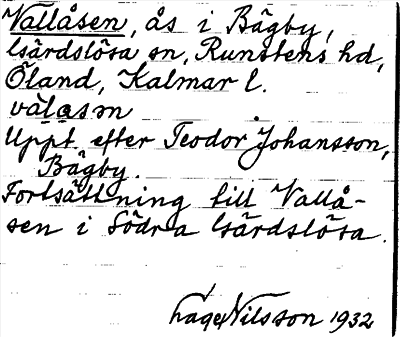 Vallåsen, ås i Bägby,
Gärdslösa sn, Runstens hd,
Öland, Kalmar l.
välasən
Uppt. efter Teodor Johansson,
Bägby.
Fortsättning till Vallå-
sen i Södra Gärdslösa.
Nilsson 1932